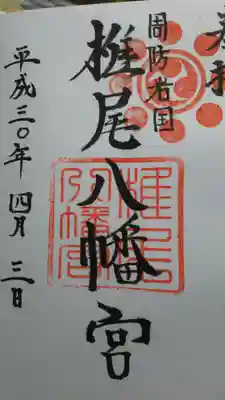 奉拝
周防岩国
椎尾八幡宮
平成三〇年 四月 三日
椎尾八幡宮